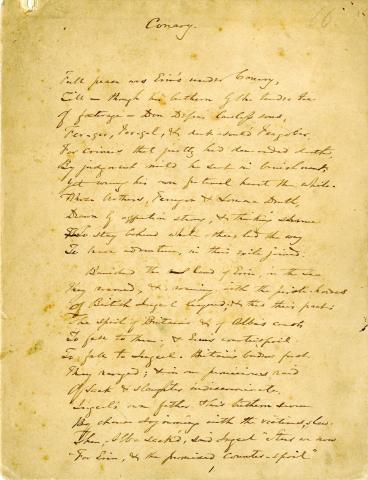 Conary.
Full peace was Erin's under Conary,
Till — though his brethren by the tender tie
Of fosterage — Don Dessa's lawless sons,
Fergus, Fergel, & dark-souled Fergobar,
For crimes that justly had demanded death,
By judgment mild he sent in banishment;
Yet wrung his own fraternal heart the while.
Whose brothers, Ferragon & Lomna Druth,
Drawn by affection's ties, & thinking shame
To stay behind while others led the way
To brave adventure, in their exile joined.
Banished the land of Erin, on the sea
They roamed, &, roaming, with the pirate-hordes
Of British Ingcel leagued; & this their pact:
The spoil of Britain's & of Alba's coasts
To fall to them; & Erin's counter-spoil
To fall to Ingcel. Britain's borders first
They ravaged; & in one pernicious raid
Of sack & slaughter indiscriminate,
Ingcel's own father & his brethren seven
By chance sojourning with the victims, slew.
Then, Alba sack'd, said Ingcel "Steer we now
"For Erin, & the promised counter-spoil"
1